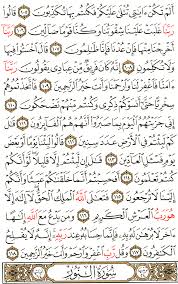 أَلَمْ تَكُنْ ءَايَٰتِي تُتْلَىٰ عَلَيْكُمْ فَكُنتُم بِهَا تُكَذِّبُونَ ١٠٥ قَالُوا۟
رَبَّنَا غَلَبَتْ عَلَيْنَا شِقْوَتُنَا وَكُنَّا قَوْمًا ضَآلِّينَ ١٠٦ رَبَّنَآ
أَخْرِجْنَا مِنْهَا فَإِنْ عُدْنَا فَإِنَّا ظَٰلِمُونَ ١٠٧ قَالَ ٱخْسَـُٔوا۟ فِيهَا
وَلَا تُكَلِّمُونِ ١٠٨ إِنَّهُۥ كَانَ فَرِيقٌ مِّنْ عِبَادِي يَقُولُونَ رَبَّنَآ
ءَامَنَّا فَٱغْفِرْ لَنَا وَٱرْحَمْنَا وَأَنتَ خَيْرُ ٱلرَّٰحِمِينَ ١٠٩ فَٱتَّخَذْتُمُوهُمْ
سِخْرِيًّا حَتَّىٰٓ أَنسَوْكُمْ ذِكْرِي وَكُنتُم مِّنْهُمْ تَضْحَكُونَ ١١٠ إِنِّي
جَزَيْتُهُمُ ٱلْيَوْمَ بِمَا صَبَرُوٓا۟ أَنَّهُمْ هُمُ ٱلْفَآئِزُونَ ١١١ قَٰلَ كَمْ
لَبِثْتُمْ فِي ٱلْأَرْضِ عَدَدَ سِنِينَ ١١٢ قَالُوا۟ لَبِثْنَا يَوْمًا أَوْ بَعْضَ
يَوْمٍ فَسْـَٔلِ ٱلْعَآدِّينَ ١١٣ قَٰلَ إِن لَّبِثْتُمْ إِلَّا قَلِيلًا لَّوْ أَنَّكُمْ
كُنتُمْ تَعْلَمُونَ ١١٤ أَفَحَسِبْتُمْ أَنَّمَا خَلَقْنَٰكُمْ عَبَثًا وَأَنَّكُمْ
إِلَيْنَا لَا تُرْجَعُونَ ١١٥ فَتَعَٰلَى ٱللَّهُ ٱلْمَلِكُ ٱلْحَقُّ لَآ إِلَٰهَ إِلَّا
هُوَ رَبُّ ٱلْعَرْشِ ٱلْكَرِيمِ ١١٦ وَمَن يَدْعُ مَعَ ٱللَّهِ إِلَٰهًا
ءَاخَرَ لَا بُرْهَٰنَ لَهُۥ بِهِۦ فَإِنَّمَا حِسَابُهُۥ عِندَ رَبِّهِۦٓ إِنَّهُۥ لَا يُفْلِحُ
ٱلْكَٰفِرُونَ ١١٧ وَقُل رَّبِّ ٱغْفِرْ وَٱرْحَمْ وَأَنتَ خَيْرُ ٱلرَّٰحِمِينَ ١١٨
سُورَةُ ٱلنُّورِ